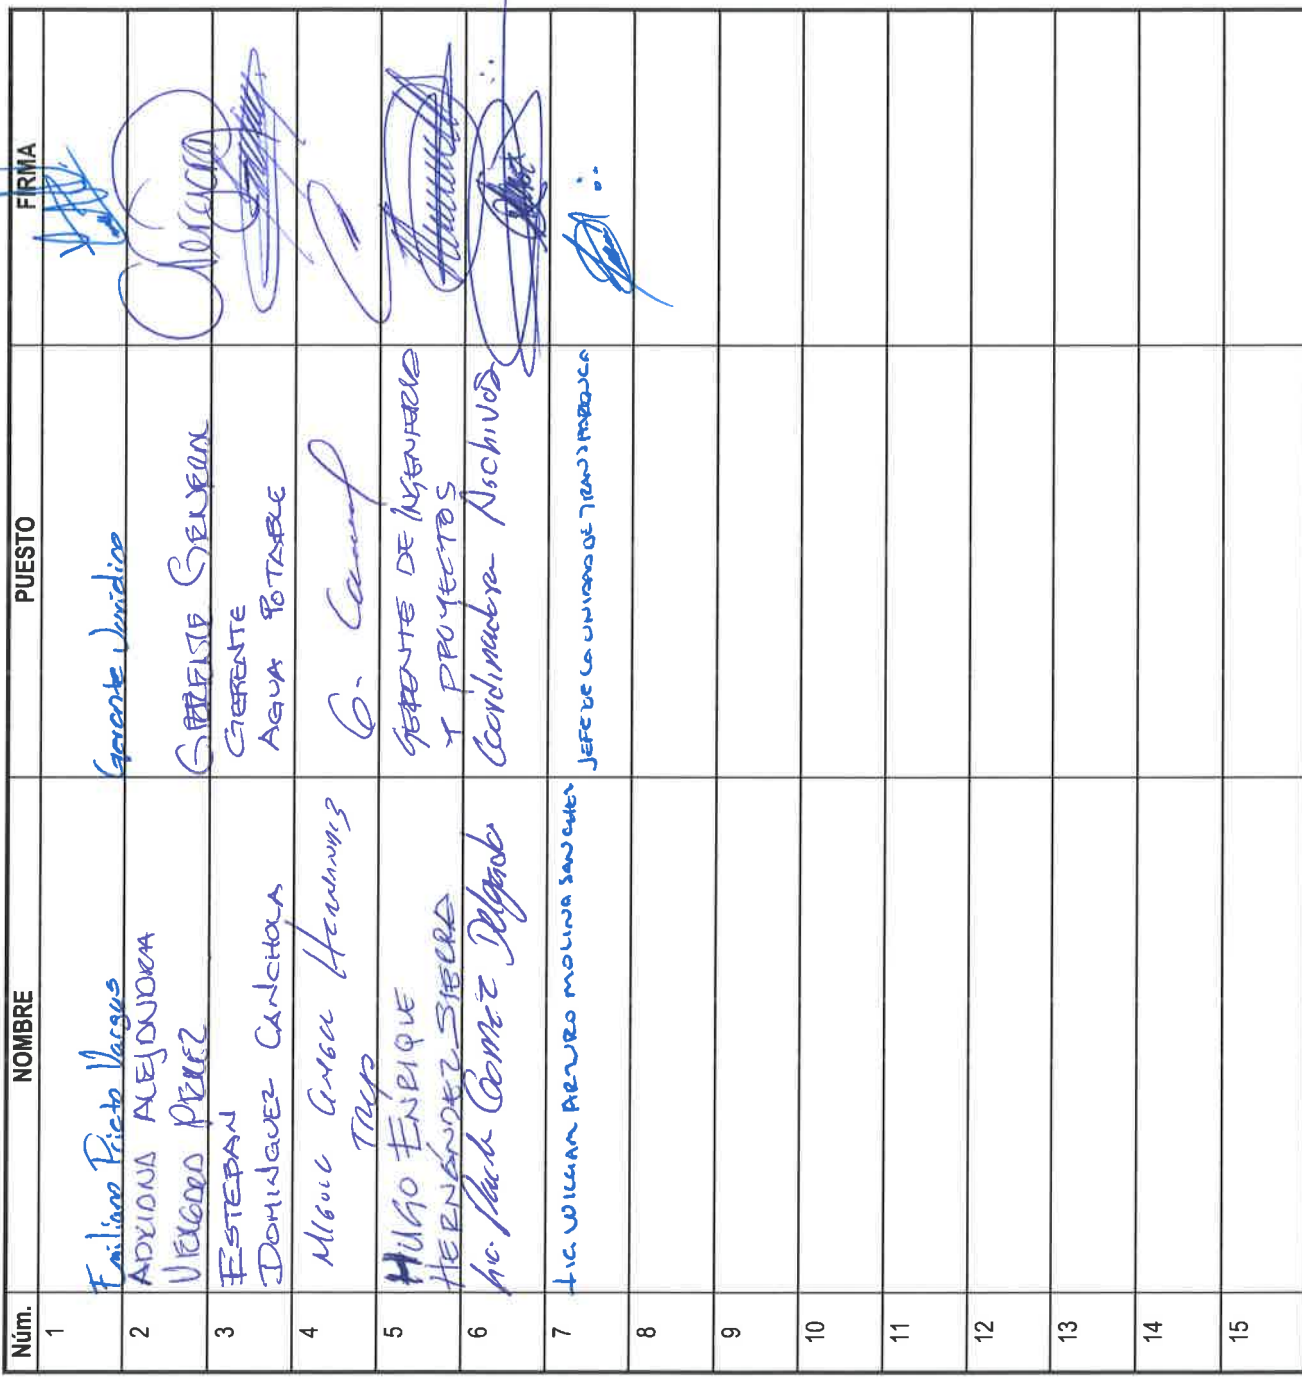 Núm. NOMBRE PUESTO FIRMA
1 Emiliano Prieto Vargas Gerente Jurídico
2 ADRIANA ALEJANDRA
PÉREZ GERENTE GENERAL
3 ESTEBAN GERENTE
DOMINGUEZ CANCHOLA AGUA POTABLE
4 MIGUEL ANGEL HERNANDEZ G.
5 HUGO ENRIQUE GERENTE DE INGENIERIA
HERNÁNDEZ SIERRA Y PROYECTOS
6 Lic. Gomez Delgado Coordinadora Archivos
7 Lic. WILLIAM ARTURO MOLINA SANCHEZ JEFE DE LA UNIDAD DE TRANSPARENCIA
8
9
10
11
12
13
14
15